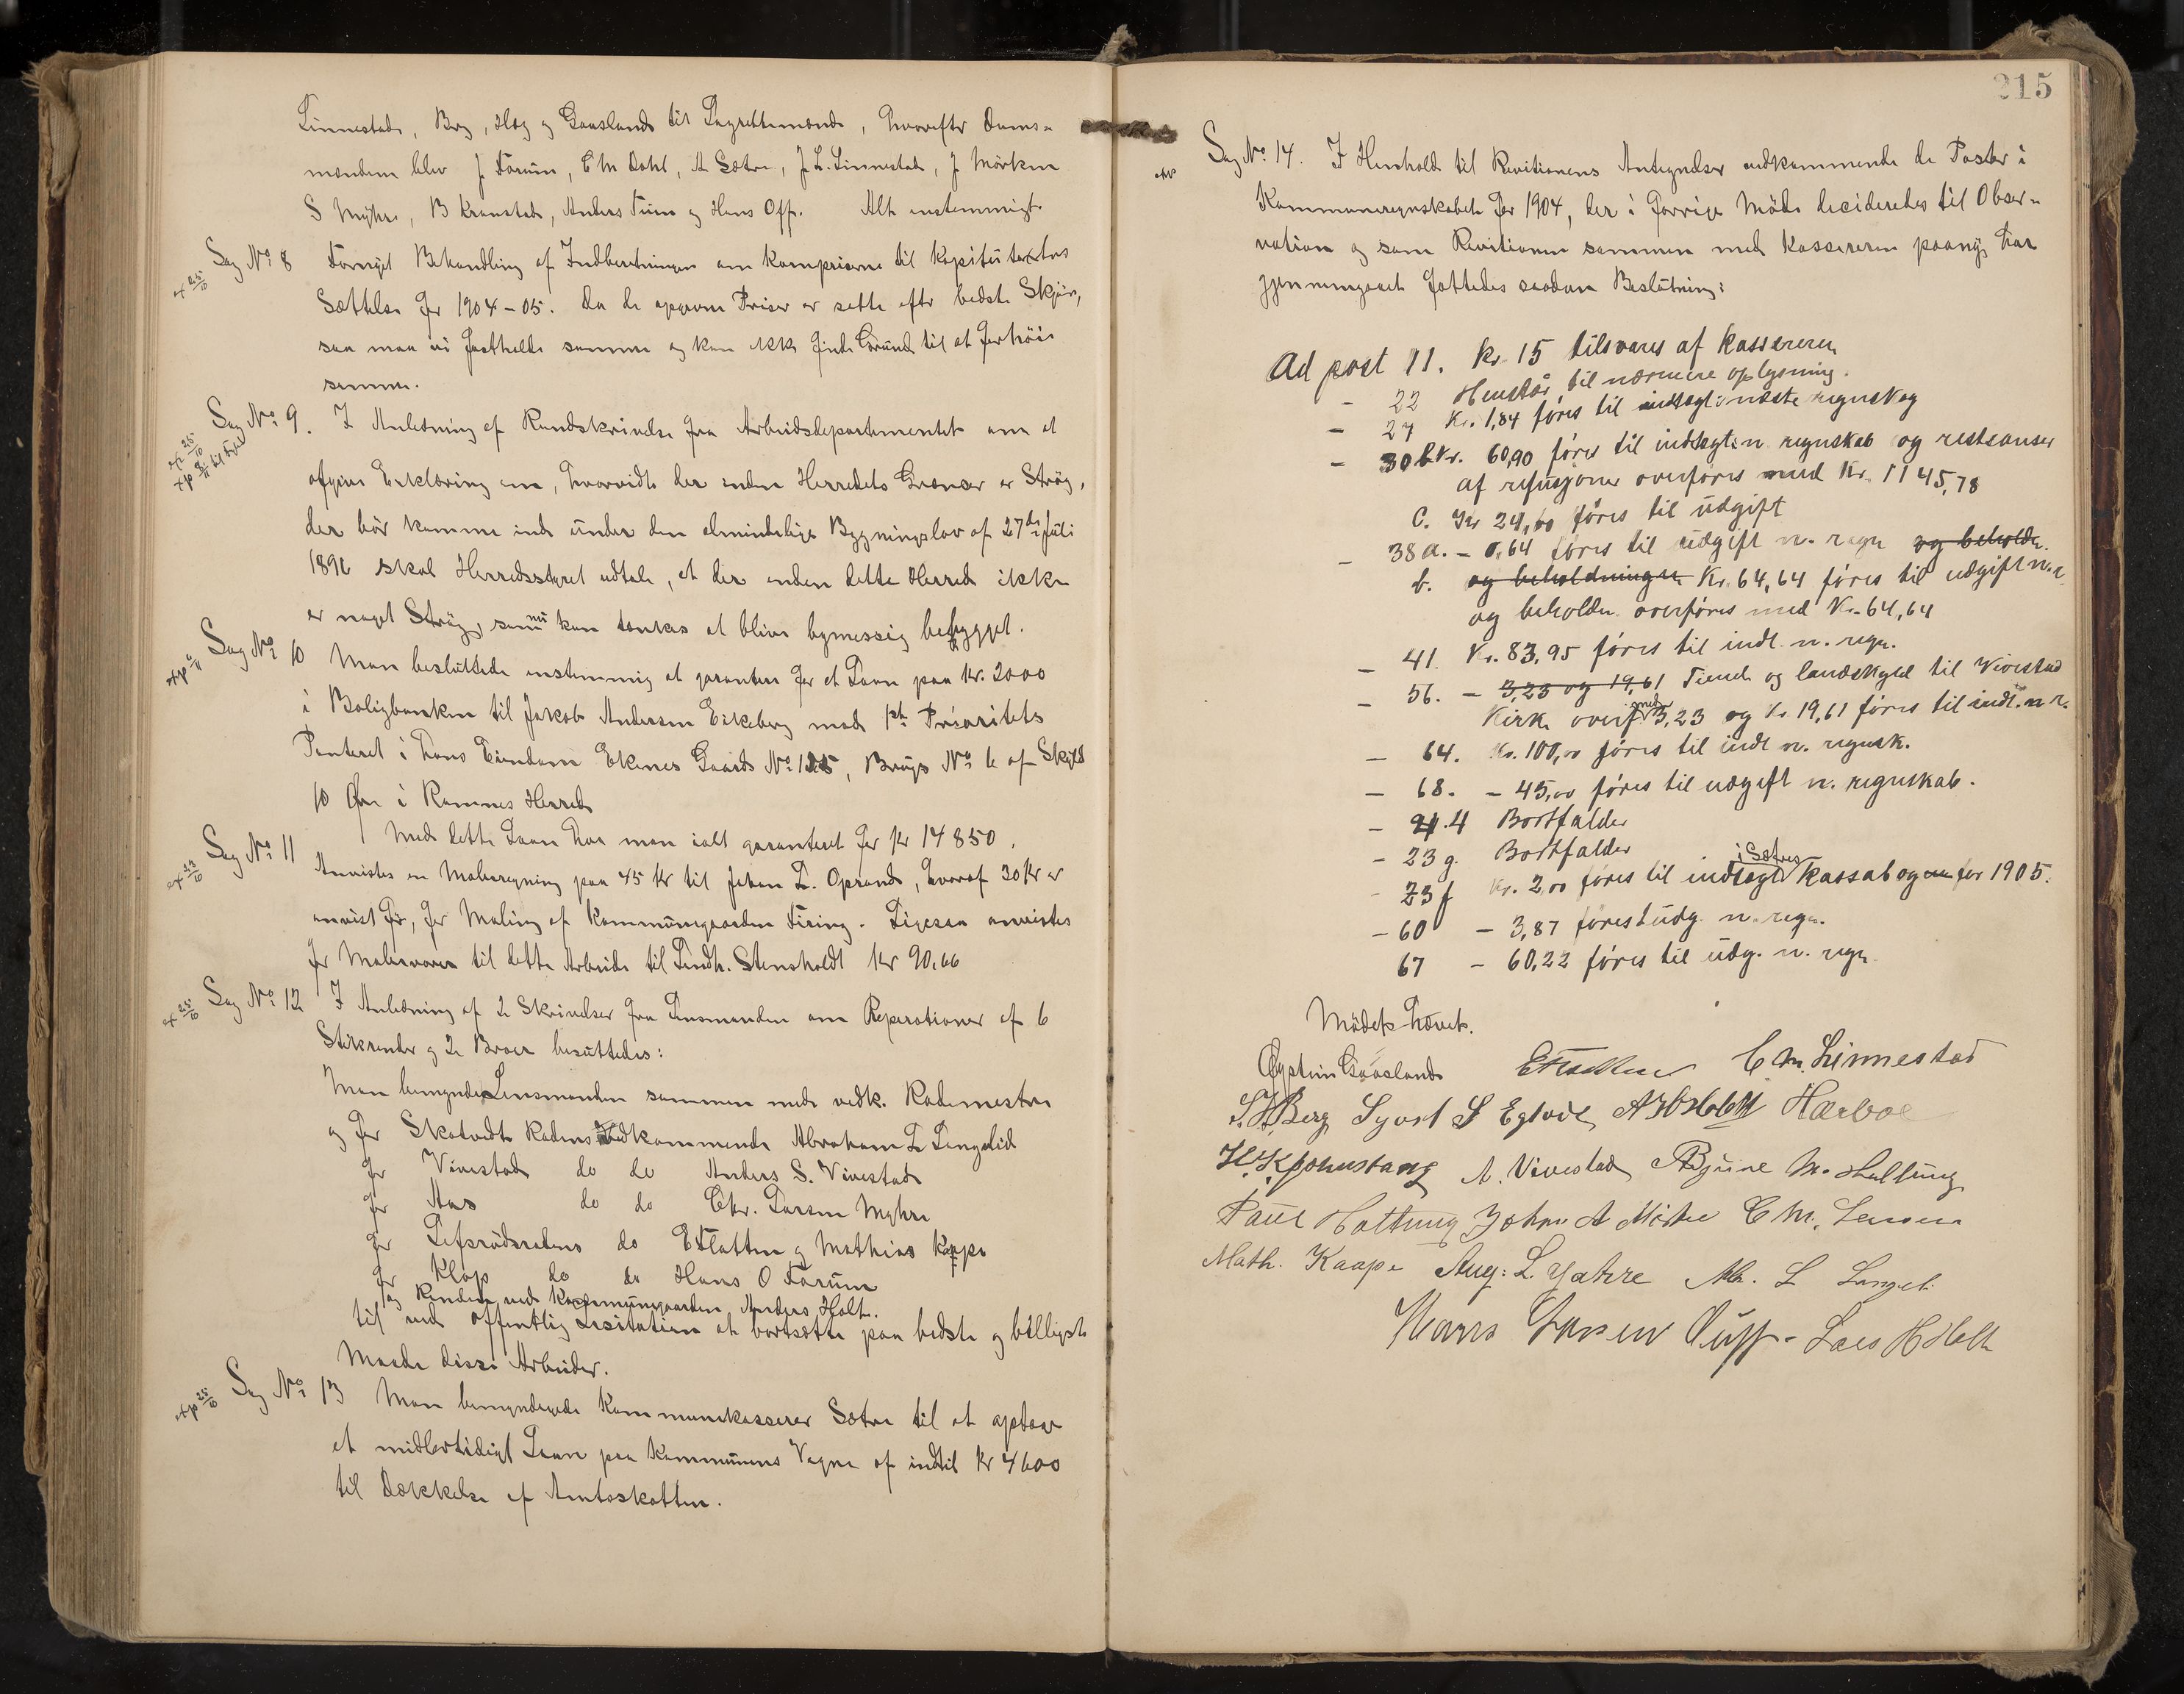 Linnestad, Berg, Hæg og Gaasland til Lagrettemænd, hvorefter Doms=
mændene blev J Forum, C M Dahl, A Sætre, J L. Linnestad, J Mörken
S Myhre, B Kronstad, Anders Tuin og Hans Off. Alt enstemmigt
Sag No 8 Fornyet Behandling af Indberetningen om Kornpriserne til Kapiteltaxtens
ex 25/10
Sættelse for 1904-05. Da de opgivne Priser er satte efter bedste Skjön,
saa maa vi fastholde samme og kan ikke finde Grund til at forhöie
samme.
Sag No 9. I Anledning af Rundskrivelse fra Arbeidsdepartementet om at
afgive Erklæring om, hvorvidt der inden Herredets Grænser er Strög,
der bör komme ind under den almindelige Bygningslov af 27de Juli
1896 skal Herredsstyret udtale, at der inden dette Herred ikke
er noget Strög, som nu kan tænkes at blive bymæssig bebygget.
Sag No 10 Man besluttede enstemmig at garantere for et Laan paa Kr. 2000
i Boligbanken til Jakob Andersen Eikeberg mod 1st Prioritets
Panteret i hans Eiendom Ekenes Gaards No 125, Brugs No 6 af Skyld
10 Øre i Ramnes Herred
Med dette Laan har man ialt garanteret for Kr 14850.
Sag No 11 Anvistes en Malerregning paa 45 Kr til Johan L. Oprand, hvoraf 30 Kr er
anvist för, for Maling af Kommunegaarden Firing. Ligesaa anvistes
for Malervarer til dette Arbeide til Landh. Stensholdt Kr 90,66
Sag No 12 I Anledning af 2 Skrivelser fra Lensmanden om Reperationer af 6
ex 25/10
Stikrender og 2 Broer besluttedes:
Man bemyndiger Lensmanden sammen med vedk. Rodemestre
og for Skatvedt Rodens Vedkommende Abraham L Langelid
for Vivestad do do Anders S. Vivestad
for Aas do do Chr. Larsen Myhre
for Lefsrödsrodens do E Flatten og Mathias Kappe
for Klop do do Hans O Forum
og Renden ved Kommunegaarden Anders Holt.
til ved offentlig Lisitation at bortsætte paa bedste og billigste
Maade disse Arbeider.
Sag No 13 Man bemyndigede Kommunekasserer Sætre til at optage
exp 25/10
et midlertidigt Laan paa Kommunens Vegne af indtil Kr 4600
til Dækkelse af Amtsskatten.
215
Sag No 14. I Henhold til Revitionens Antegnelser vedkommende de Poster i
Kommuneregnskabet for 1904, der i forrige Möde decideredes til Obser=
vation og som Revitionen sammen med Kassereren paany har
gjennemgaaet fattedes saadan Beslutning:
Ad post 11. Kr. 15 tilsvares af kassereren
- 22 Henstår til nærmere oplysning.
- 27 Kr. 1,84 föres til indtægt i næste regnskag
- 30 b Kr. 60,90 föres til indtægt i n. regnskab og restanser
af refusjoner overföres med Kr. 1145,78
C. Kr 24,00 föres til udgift
- 38 a. - 0,64 föres til udgift n. regn og beholdn.
b. og beholdningen Kr. 64,64 föres til udgift n. r.
og beholdn. overföres med Kr. 64,64
- 41. Kr. 83,95 föres til indt. n. regn.
- 56. - 3,23 og 19,61 Tiende og landskyld til Vivestad
Kirke overf. med 3,23 og Kr 19,61 föres til indt. n r.
- 64. Kr. 100,00 föres til indt n. regnsk.
- 68. - 45,00 föres til udgift n. regnskab.
- 21.4 Bortfalder
- 23 g. Bortfalder
- 23 f Kr. 2,00 föres til indtægt i Sætres Kassabog for 1905.
- 60 - 3,87 föres t udg. n. regn.
67 - 60,22 föres til udg. n. regn.
Mödet hævet.
Øystein Gaasland E Flatten C M. Linnestad
S. H. Berg Syvert S Eglode A H Holdt Hærboe
H. K Johnstang A. Vivestad A Bjune M. Hultung
Paul Hottung Johan A Mistre C M. Larsen
Math. Kaape Aug: L. Yahre Ab. L Langel.
Hans Larsen Ouff. Lars H Holt